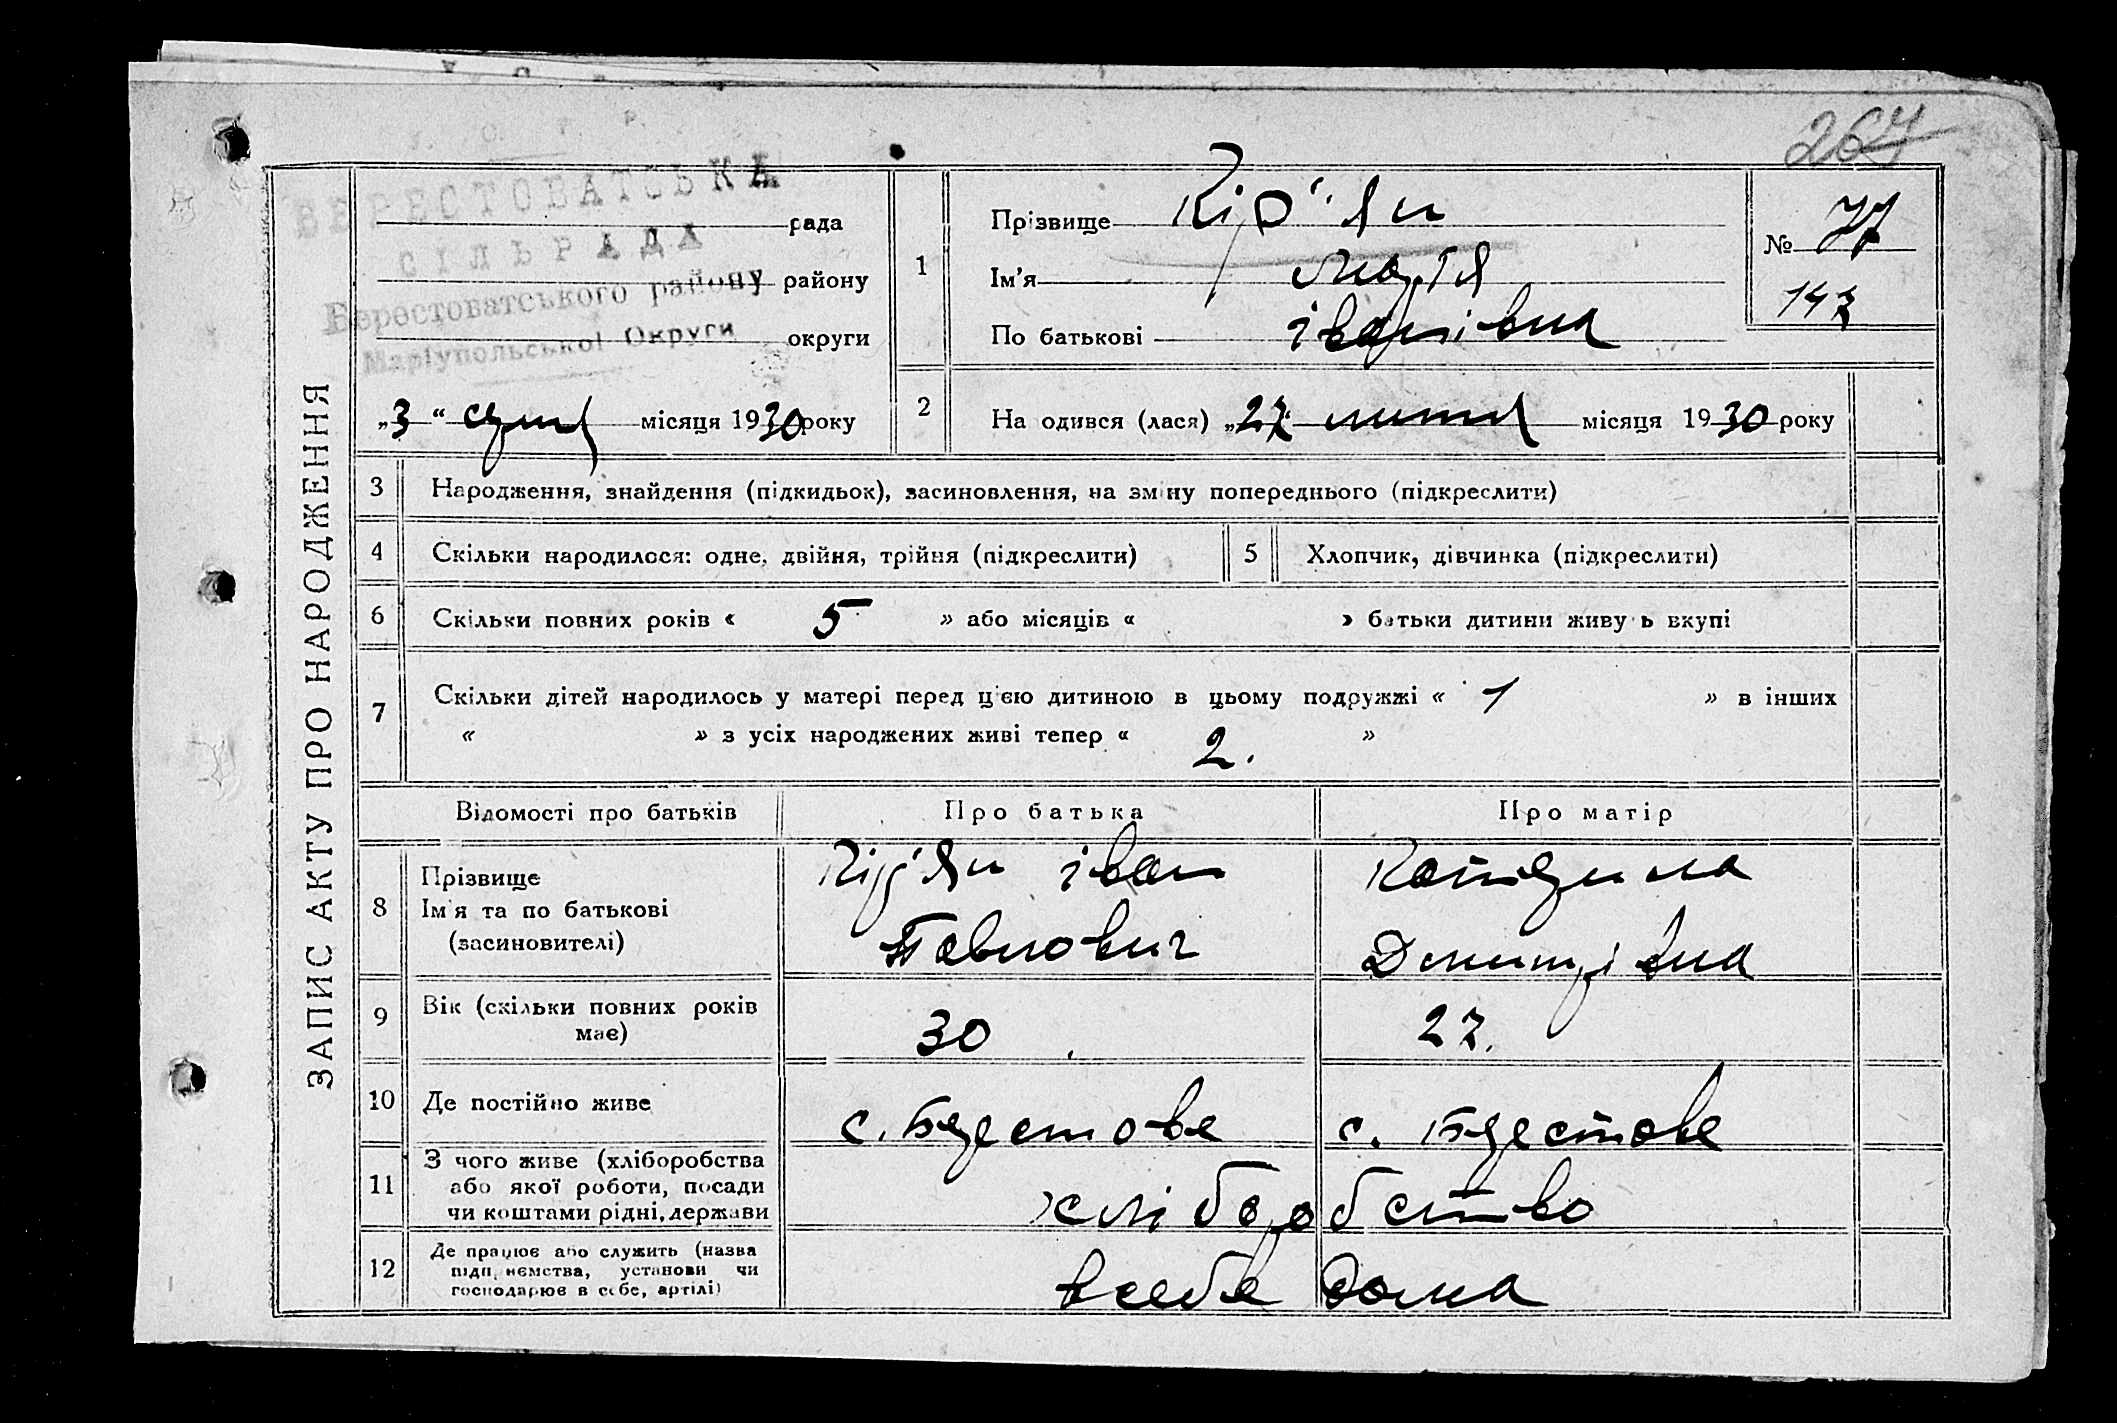 264
БЕРЕСТОВАТСЬКА
рада
СІЛЬРАДА
району
Берестоватського району
округи
Маріупольської Округи
„3“ місяця 1930 року
ЗАПИС АКТУ ПРО НАРОДЖЕННЯ
1
Прізвище Кір'ян
Ім'я
По батькові іванівна
№ 77
147
2
На одився (лася) „27“ місяця 1930 року
3 Народження, знайдення (підкидьок), засиновлення, на зміну попереднього (підкреслити)
4 Скільки народилося: одне, двійня, трійня (підкреслити)
5 Хлопчик, дівчинка (підкреслити)
6 Скільки повних років « 5 » або місяців « » батьки дитини живуть вкупі
7 Скільки дітей народилось у матері перед цією дитиною в цьому подружжі « 1 » в інших
« » з усіх народжених живі тепер « 2. »
Відомості про батьків Про батька Про матір
8 Прізвище
Ім'я та по батькові
(засиновителі)
Кір'ян іван
Павлович
Катерина
Дмитрівна
9 Вік (скільки повних років
має)
30
27.
10 Де постійно живе с. Берестове с. Берестове
11 З чого живе (хліборобства
або якої роботи, посади
чи коштами рідні, держави
хліборобство
12 Де працює або служить (назва
підприємства, установи чи
господарює в себе, артілі)
в себе дома